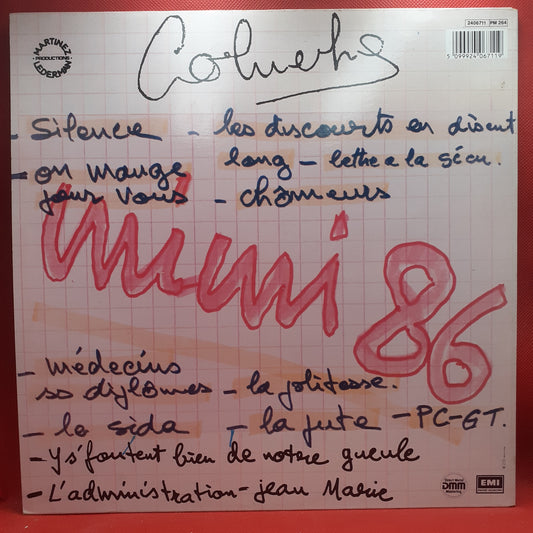 MARTINEZ
PRODUCTIONS
LEDERMAN
Coluche
2406711 PM 264
5 099924 067119
- Silence - les discourts en disent
- on mange long - lettre a la sécu.
pour vous - chômeurs
mimi 86
- médecins
ss diplômes - la politesse.
- le sida - la pute - PC-GT.
- Y s'foutent bien de notre gueule
- L'administration - jean Marie
Direct Metal
DMM
Mastering
EMI